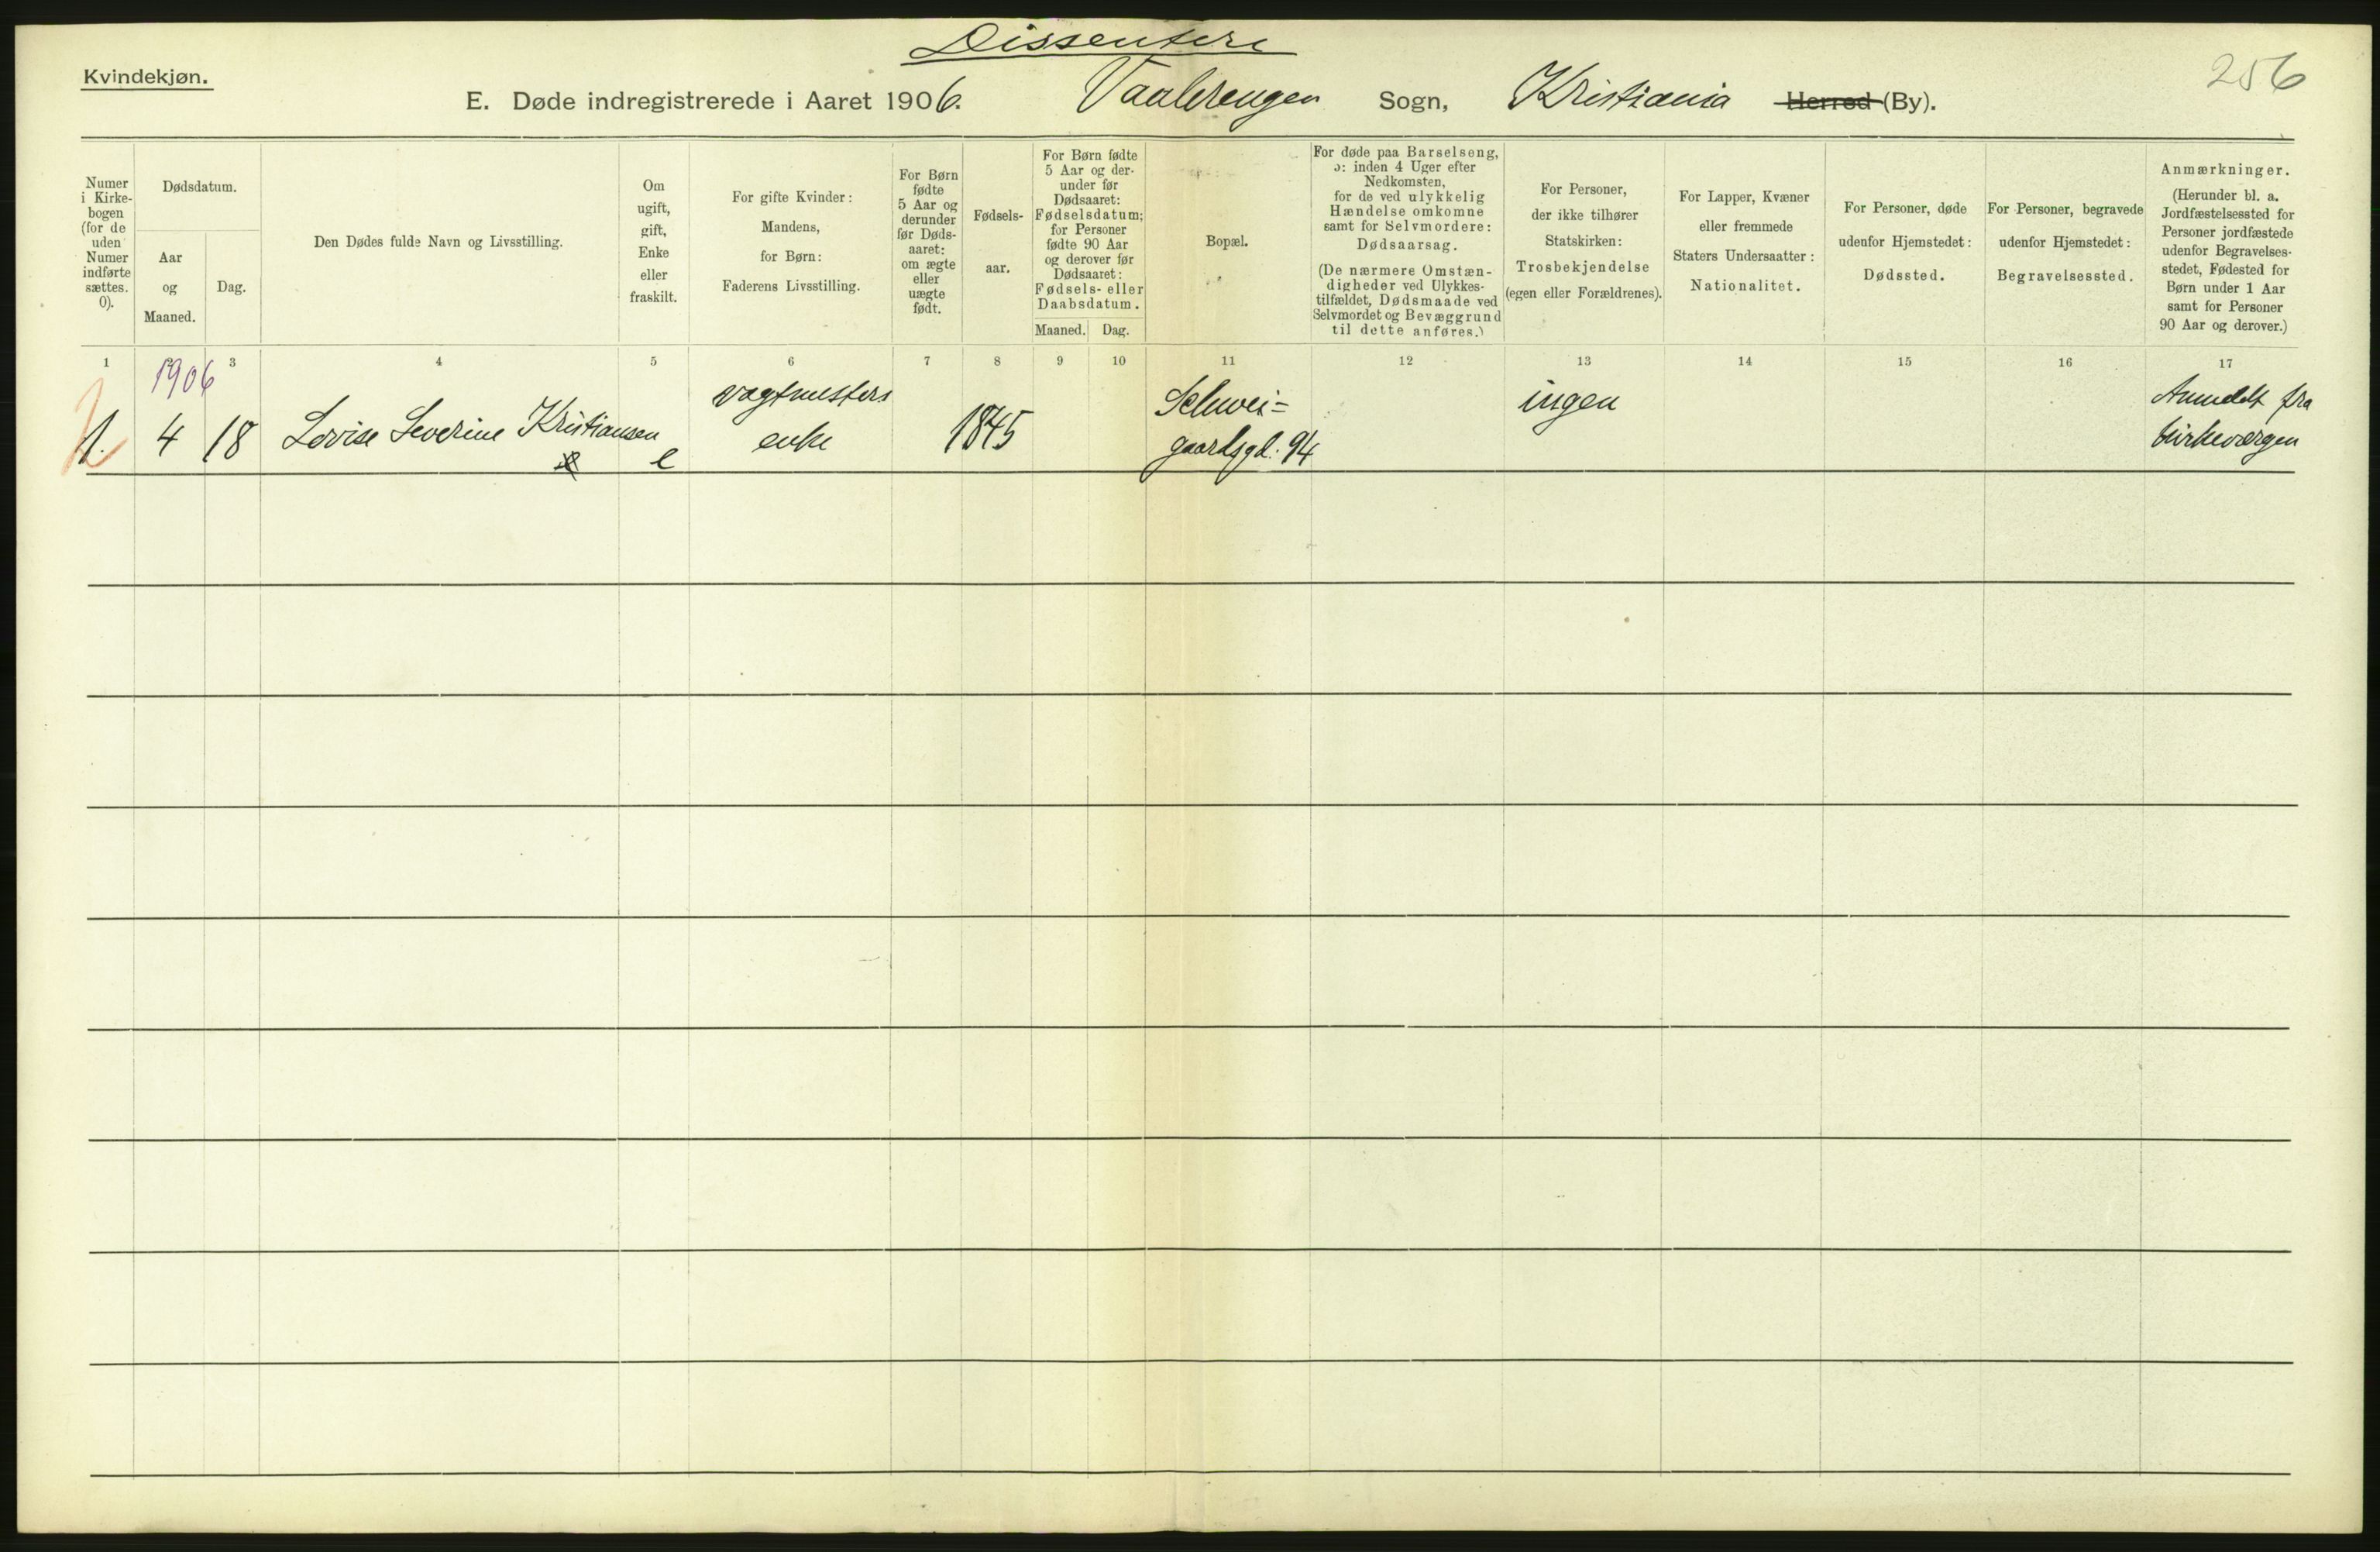 Dissentere
256
Kvindekjøn.
E. Døde indregistrerede i Aaret 1906. Vaalerengen Sogn, Kristiania Herred (By).
Numer
i Kirke-
bogen
(for de
uden
Numer
indførte
sættes.
0).
Dødsdatum.
Aar
og
Maaned.
Dag.
Den Dødes fulde Navn og Livsstilling.
Om
ugift,
gift,
Enke
eller
fraskilt.
For gifte Kvinder:
Mandens,
for Børn:
Faderens Livsstilling.
For Børn
fødte
5 Aar og
derunder
før Døds-
aaret:
om ægte
eller
uægte
født.
Fødsels-
aar.
For Børn fødte
5 Aar og der-
under før
Dødsaaret:
Fødselsdatum;
for Personer
fødte 90 Aar
og derover før
Dødsaaret:
Fødsels- eller
Daabsdatum.
Maaned. Dag.
Bopæl.
For døde paa Barselseng,
ɔ: inden 4 Uger efter
Nedkomsten,
for de ved ulykkelig
Hændelse omkomne
samt for Selvmordere:
Dødsaarsag.
(De nærmere Omstæn-
digheder ved Ulykkes-
tilfældet, Dødsmaade ved
Selvmordet og Bevæggrund
til dette anføres.)
For Personer,
der ikke tilhører
Statskirken:
Trosbekjendelse
(egen eller Forældrenes).
For Lapper, Kvæner
eller fremmede
Staters Undersaatter:
Nationalitet.
For Personer, døde
udenfor Hjemstedet:
Dødssted.
For Personer, begravede
udenfor Hjemstedet:
Begravelsessted.
Anmærkninger.
(Herunder bl. a.
Jordfæstelsessted for
Personer jordfæstede
udenfor Begravelses-
stedet, Fødested for
Børn under 1 Aar
samt for Personer
90 Aar og derover.)
1 3 4 5 6 7 8 9 10 11 12 13 14 15 16 17
1906
1. 4 18 Lovise Severine Kristiansen e
vagtmesters
enke
1845
Schwei=
gaardsgd. 94
ingen
Anmeldt fra
kirkevergen